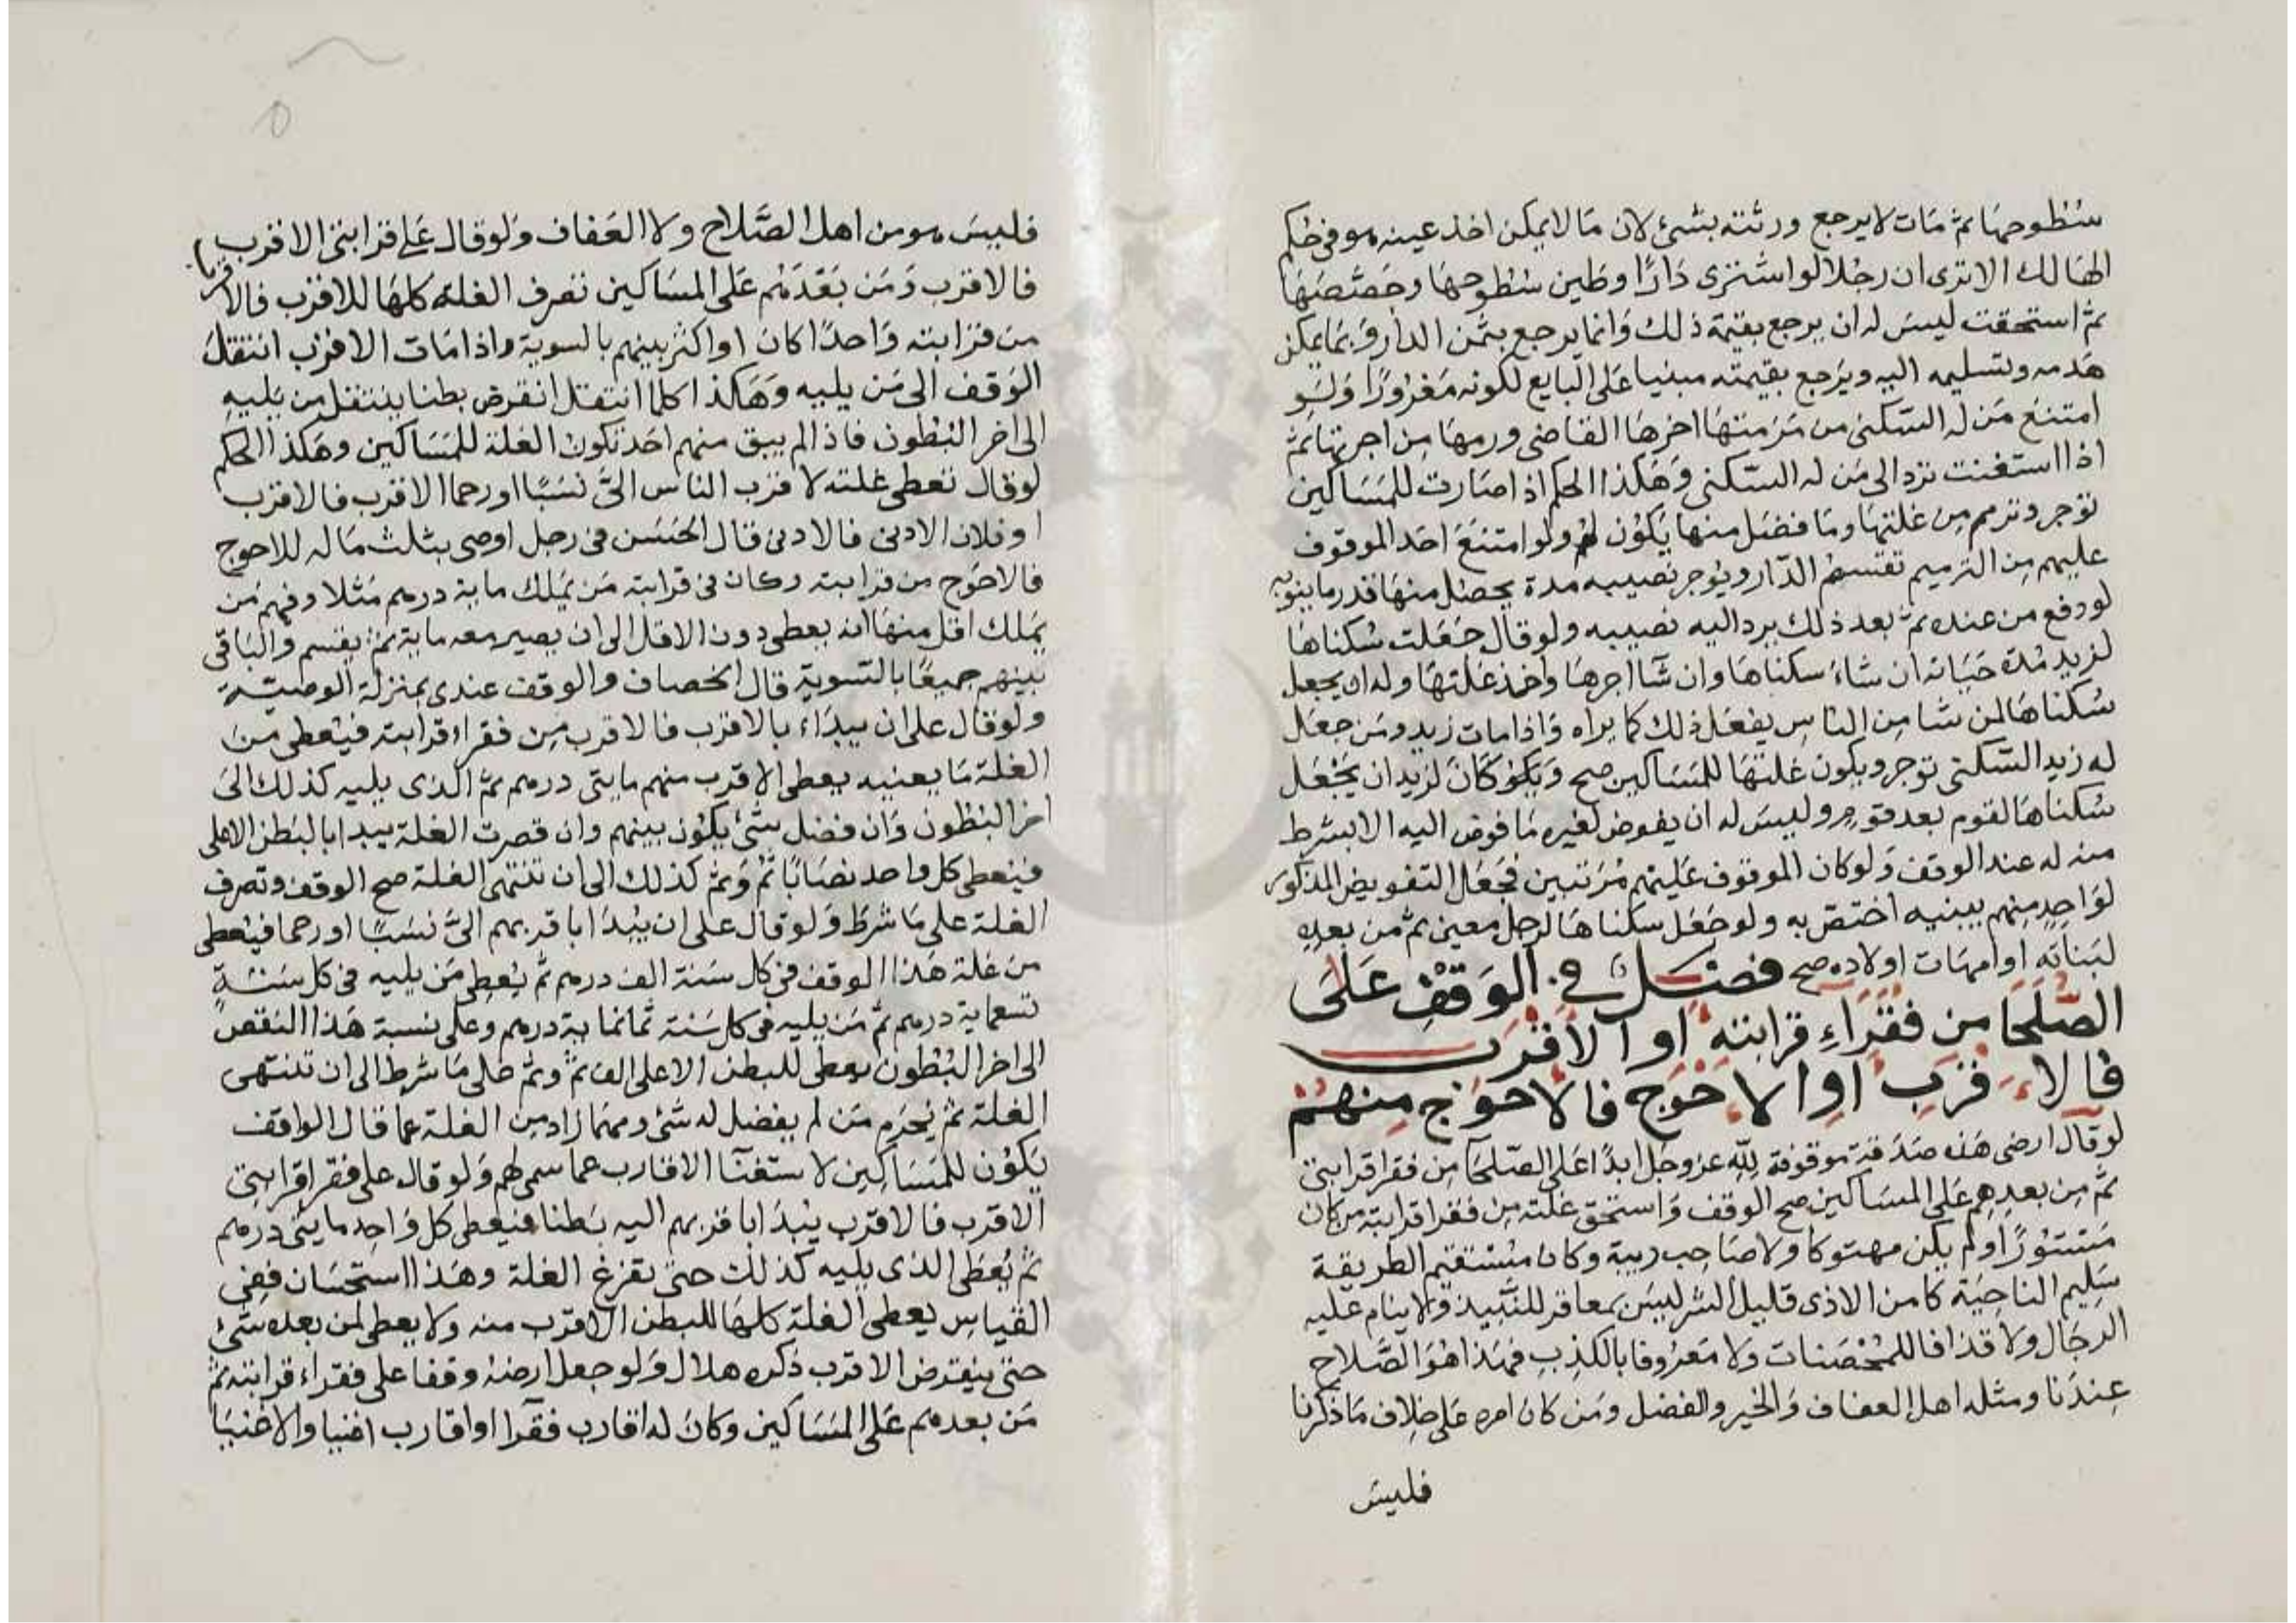 سُطوحهَا ثم مَات لا يرجع ورثته بشئ لان مَا لا يمكن اخذ عينه هو فى حُكم
الهَالك الا ترى ان رجُلا لو اشترى دَارًا وطين سُطوحهَا وجَصَّصَهَا
ثم استحقت ليسَ له ان يرجع بقيمة ذلك وَانما يرجع بثمن الدار وَبمَا يمكن
هَدمه وتسليمه اليه ويَرجع بقيمته مبنيا عَلى البايع لكونه مَغرُورًا وَلَو
امتنعَ مَن له السّكنى من مَرَمتهَا اجرهَا القاضى ورمهَا مِن اجرتهَا ثم
اذا استغنت ترد الى مَن له السّكنى وَهَكذا الحكم اذا صَارت للمَسَاكين
توجر وترمم مِن غلتهَا ومَا فضَل منهَا يَكوُن لهُم ولو امتنَعَ احَد الموقوف
عليهم مِن الترميم تقسمُ الدّار ويُوجر نصيبه مدة يحصُل منهَا قدر ما ينوبه
لو دفع من عنده ثمّ بعد ذلك يرد اليه نصيبه ولو قال جَعَلت سُكناهَا
لزيد مُدة حَيَاته ان شاءَ سكناهَا وان شآ اجرهَا واخذ غلتهَا وله ان يجعل
سُكناهَا لمن شا مِن الناس يفعَل ذلك كما يراه وَاذا مات زيد ومَن جعَل
له زيد السّكنى توجر ويكون غلتهَا للمَسَاكين صح وَيَكوُ كَانَ لزيد ان يَجْعَل
سُكناهَا لقوم بعد قومٍ وليسَ له ان يفوض لغيره مَا فوض اليه الا بشرط
منه له عند الوقف وَلو كان الموقوف عَليهم مُرَتبين فجَعَل التفويض المذكور
لوَاحِد مِنهم ببنيه اختصّ به ولو جَعَل سكناهَا لرجل معين ثم من بعدِه
لبَناتِه او امهَات اولاده صح فصْــل في الوَقْفِ عَلَى
الصّلَحَا من فقرَاءِ قرابته او الاقرَب
فالاقرَب اوِ الاحْوَج فالاحوَج مِنهُمْ
لو قال ارضى هَذه صَدَقة موقوفة لِلّه عز وجل ابدًا عَلى الصّلحَا مِن فقرا قرابتى
ثم مِن بعدِهِم عَلى المسَاكين صح الوقف وَاستحق غلته مِن فقرا قرابته من كان
مَسْتوُرًا ولم يكن مهتوكا ولا صَاحِب ريبة وكان مُسْتقيم الطريقة
سَليم الناحِيَة كامن الاذى قليل الشر ليسَ بمعاقر للنَّبيذ ولا ينام عليه
الرجَال ولا قذافا للمُحْصَنات ولا مَعرُوفا بالكذِبِ فهَذا هُوَ الصَّلاح
عِندَنا ومثله اهل العفاف وَالخير والفضل ومَن كان امره عَلى خِلاف مَا ذكرنا
فليسَ
فليسَ هو من اهل الصَّلاح ولا العَفاف وَلو قال عَلى قرابتى الاقرب
فالاقرب وَمَن بَعْدَهُم عَلى المسَاكين تصرف الغلة كلهَا للاقرب فالاقرب
من قرابته وَاحدًا كانَ او اكثر بينهم بالسوية واذا مَات الاقرب انتقلَ
الوَقف الى مَن يليه وَهَكذا كلما انتقل انقرض بطنا ينتقل من يَليهِ
الى اخر البُطون فاذا لم يبق منهم احَد تكون الغلة للمَسَاكين وهَكذا الحكم
لو قال تعطى غلته لاقرَب الناس الىَّ نسَبًا او رحما الاقرب فالاقرب
او فلان الادنى فالادنى قال الحَسَن فى رجل اوصى بثلث مَاله للاحوج
فالاحوَج من قرابته وكان فى قرابته مَن يَملك ماية درهم مَثلا وفيهم مَن
يَملك اقل منهَا انه يعطى دون الاقل الى ان يصير معه ماية ثم يقسم والبَاقى
بَينهم جميعًا بالتّسوية قال الخصاف والوقف عندى بمنزلة الوصيّةِ
ولو قال على ان يبدَاء بالاقرَب فالاقرب مِن فقراء قرابته فيُعطى مِن
الغلة مَا يغنيه يعطى الاقرب منهم مايتى درهم ثمّ الذى يليه كذلك الى
اخر البُطون وَان فضل شئ يكوُن بينهم وان قصرت الغلة يبدا بالبَطن الاعلى
فيُعطى كل واحد نصَابًا ثمُ وَثم كذلك الى ان تنتهى الغلة صح الوقف وتصرف
الغلة على مَا شرَط وَلو قال على ان يُبْدَا باقربهم الىَّ نسَبًا او رحما فيُعطى
من غلة هَذا الوقف فى كل سَنة الف درهم ثم يُعطى مَن يليه فى كل سَنَةٍ
تسعماية درهم ثم مَن يليه فى كل سَنة ثمانماية درهم وعلى نسبة هَذا النقصُ
الى اخر البُطون يعطى للبطن الاعلى الف ثمّ وثم على مَا شرط الى ان تنتهى
الغلة ثم يُحرَم مَن لم يفضل له شئ ومهمَا زاد مِن الغلة عما قال الواقف
يَكوُن للمَسَاكِين لاستغنآ الاقارب عما سمى لهم وَلو قال على فقرا قرابتى
الاقرَب فالاقرَب يُبدَا باقربهم اليه بَطنا فيعطى كل وَاحِد مايتى درهم
ثم يُعطى الذى يليه كذلك حتى تفرغ الغلة وهَذا استحْسَان ففى
القيَاسِ يعطى الغلة كلهَا للبطن الاقرب منه ولا يعطى لمن بعده شئ
حتى ينقرض الاقرب ذكره هلال وَلو جعل ارضهُ وقفا على فقراء قرابته ثم
مَن بعدهم عَلى المسَاكين وكانَ له اقارب فقرَآ او اقارب اغنيا والاغنيَا